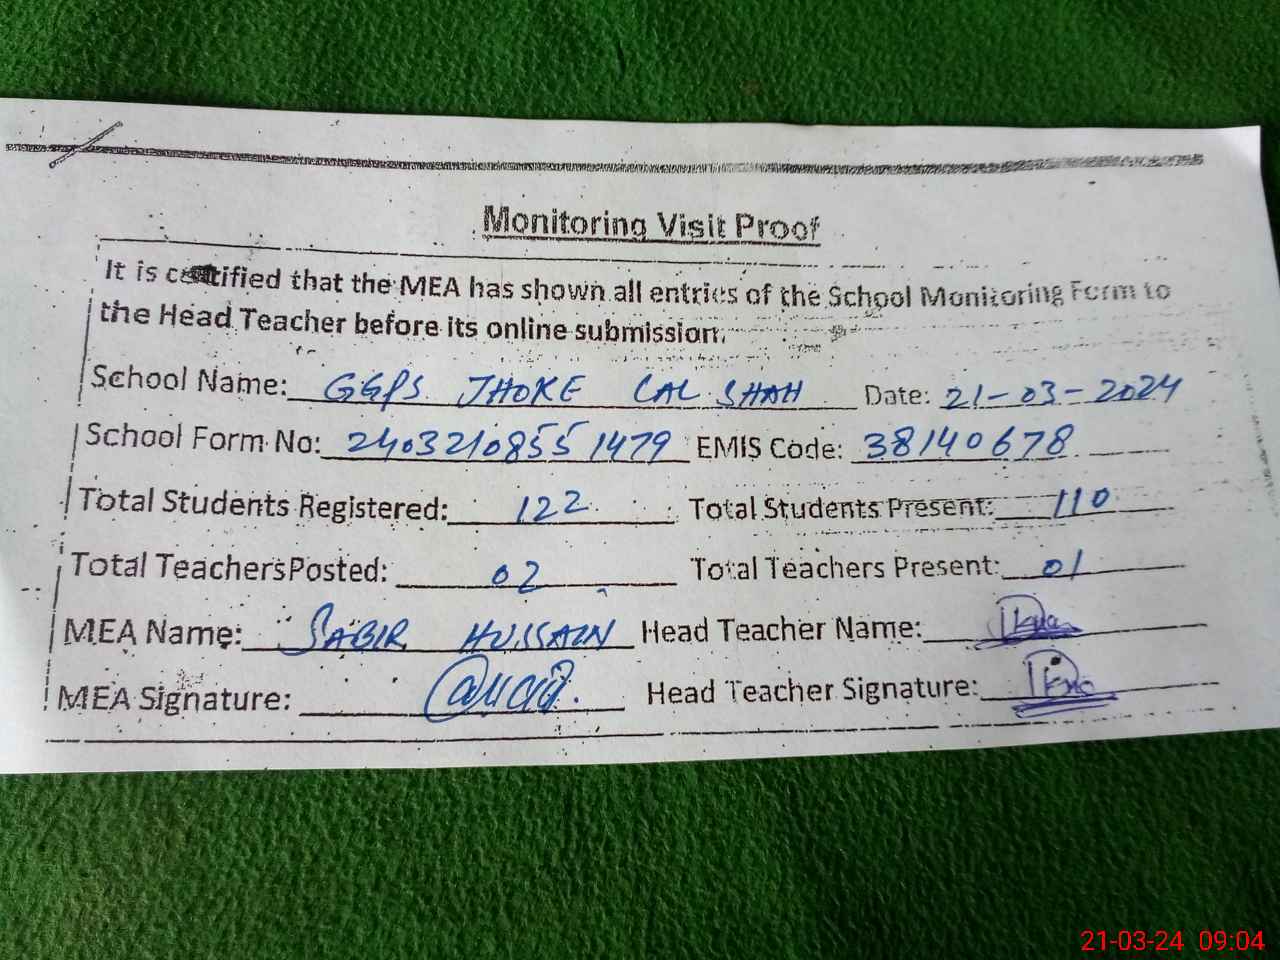 Monitoring Visit Proof
It is certified that the MEA has shown all entries of the School Monitoring Form to
the Head Teacher before its online submission.
School Name: GGPS JHOKE LAL SHAH Date: 21-03-2024
School Form No: 24032108551479 EMIS Code: 38140678
Total Students Registered: 122 Total Students Present: 110
Total Teachers Posted: 02 Total Teachers Present: 01
MEA Name: SABIR HUSSAIN Head Teacher Name:
MEA Signature: Head Teacher Signature:
21-03-24 09:04